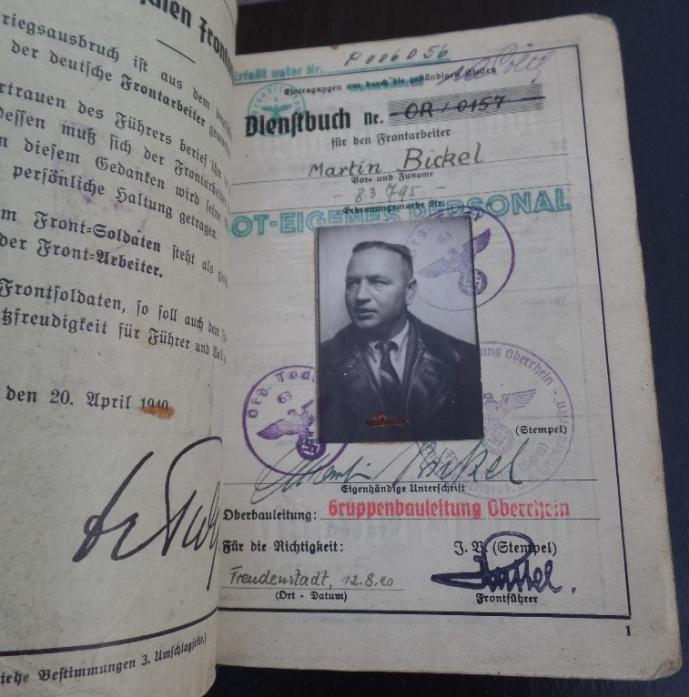 schen Frontar
riegsausbruch ist aus dem
der deutsche Frontarbeiter
rtrauen des Führers berief ihn
dessen muß sich der Frontarbeiter
n diesem Gedanken wird seine
persönliche Haltung getragen.
m Front-Soldaten steht als
der Front-Arbeiter.
Frontsoldaten, so soll auch den
tzfreudigkeit für Führer und
den 20. April 1940
iehe Bestimmungen 3. Umschlagseite.)
Erfaßt unter Nr. P006056
Eintragungen nur durch die zuständigen Stellen
Dienstbuch nr. OR/0157
für den Frontarbeiter
Martin Bickel
Vor- und Zuname
- 83795 -
Erkennungsmarke Nr.
OT-EIGENES PERSONAL
Org. Tod
63
ung Oberrhein
(Stempel)
Martin Bickel
Eigenhändige Unterschrift
Oberbauleitung: Gruppenbauleitung Oberrhein
Für die Richtigkeit: J. V. (Stempel)
Freudenstadt, 12.8.40
(Ort - Datum) Frontführer
1